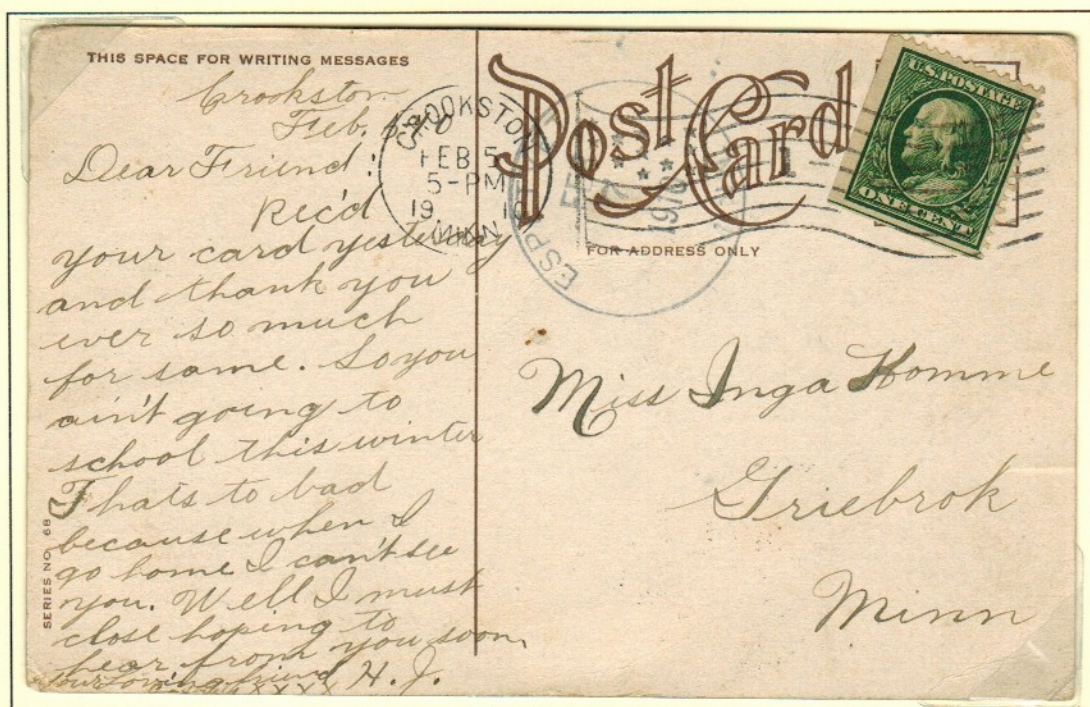 THIS SPACE FOR WRITING MESSAGES
Crookston
Feb. 5
Dear Friend:
Rec'd
your card yesterday
and thank you
ever so much
for same. So you
ain't going to
school this winter
Thats to bad
because when I
go home I can't see
you. Well I must
close hoping to
hear from you soon,
your loving friend H. J.
SERIES NO 6B
Post Card
FOR ADDRESS ONLY
CROOKSTON
FEB 5
5-PM
19 10
MINN
ESP
1910
U.S. POSTAGE
ONE CENT
Miss Inga Homme
Griebrok
Minn